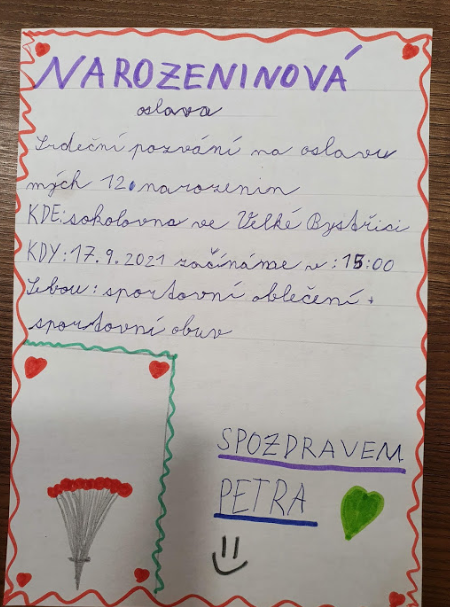 NAROZENINOVÁ
oslava
Srdeční pozvání na oslavu
mých 12. narozenin
KDE: sokolovna ve Velké Bystřici
KDY: 17.9.2021 začínáme v: 15:00
Sebou: sportovní oblečení +
sportovní obuv
SPOZDRAVEM
PETRA